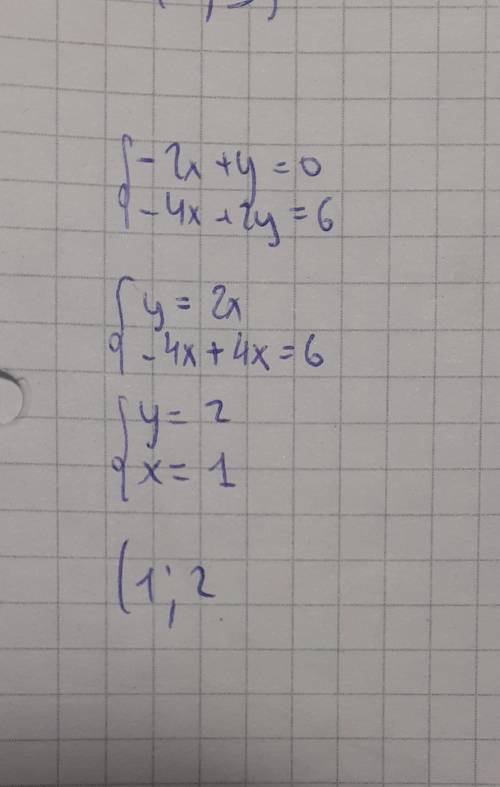 -2x+y=0
-4x+2y=6
y=2x
-4x+4x=6
y=2
x=1
(1;2